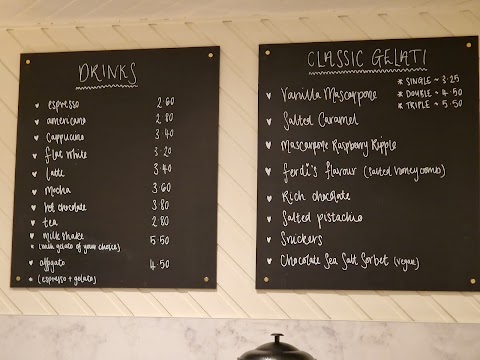 DRINKS
espresso 2.60
americano 2.80
Cappucino 3.40
flat white 3.20
latte 3.40
mocha 3.60
hot chocolate 3.80
tea 2.80
milkshake 5.50
* (with gelato of your choice)
affogato 4.50
* (espresso + gelato)
CLASSIC GELATI
* SINGLE ~ 3.25
* DOUBLE ~ 4.50
* TRIPLE ~ 5.50
Vanilla Mascarpone
Salted Caramel
Mascarpone Raspberry Ripple
ferdi's flavour (salted honeycomb)
Rich chocolate
Salted pistachio
Snickers
Chocolate Sea Salt Sorbet (vegan)